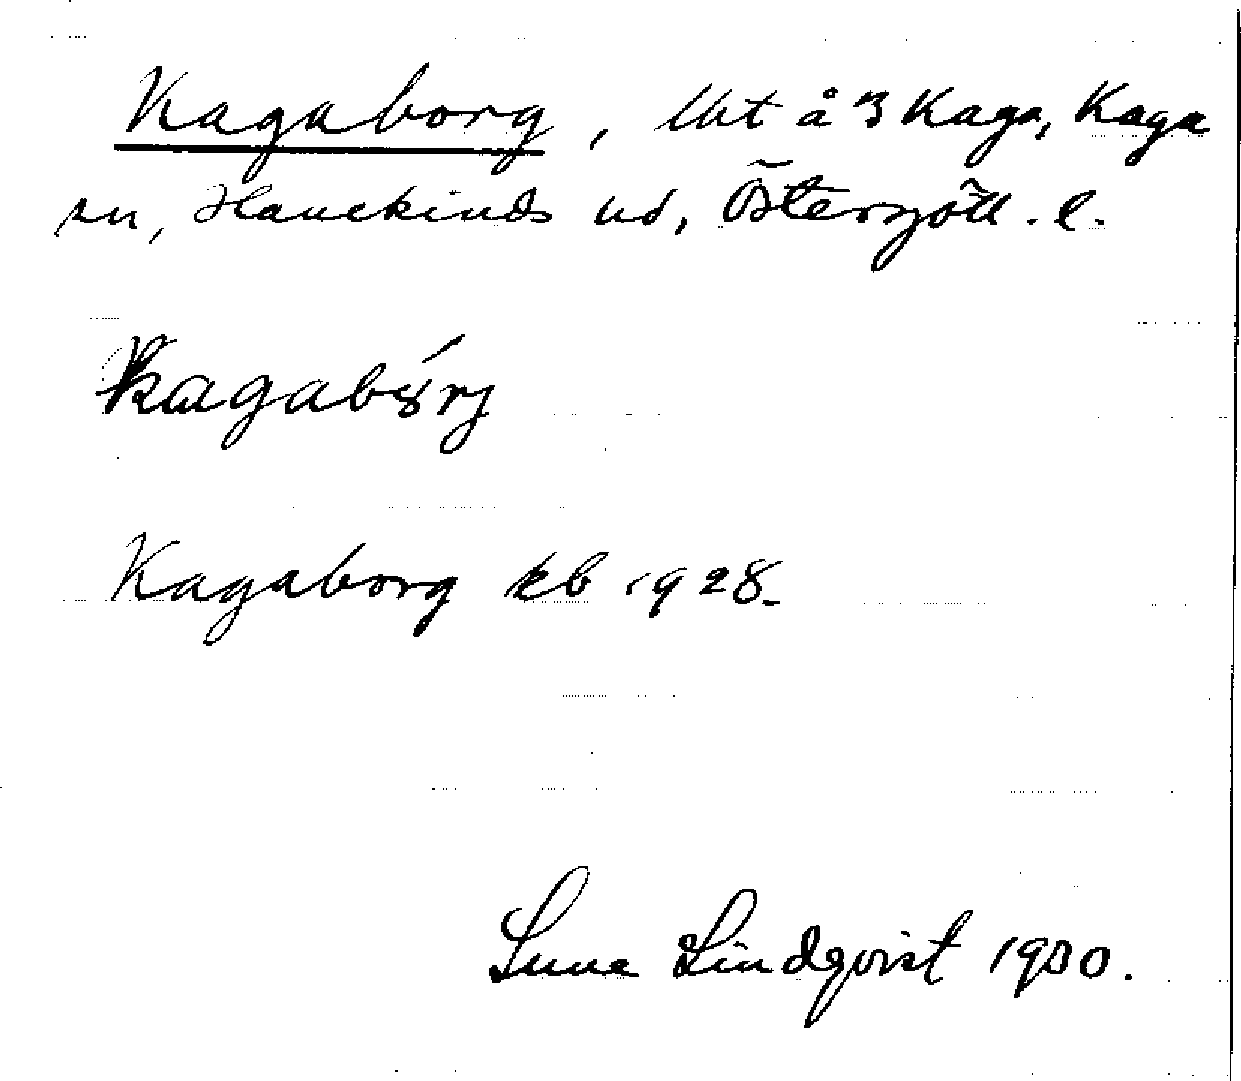 Kagaborg, lht å 3 Kaga, Kaga
sn, Hanekinds hd, Östergötl. l.
kagabórj
Kagaborg kb 1928.
Sune Lindqvist 1930.